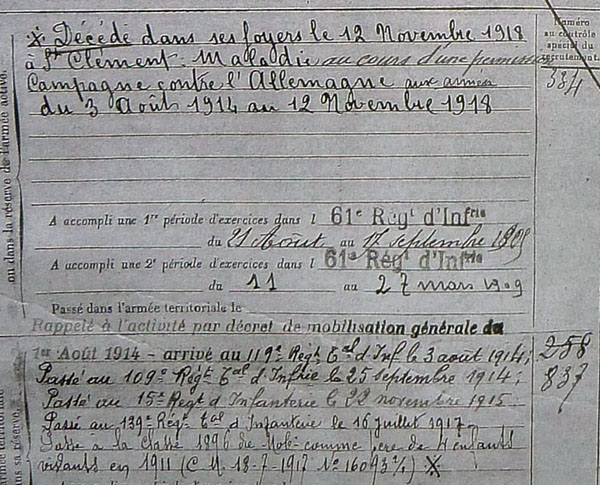 ※ Décédé dans ses foyers le 12 Novembre 1918
à St Clément. Maladie au cours d'une permission
Campagne contre l'Allemagne aux armées
du 3 Août 1914 au 12 Novembre 1918
Numéro
au contrôle
spécial du
recrutement.
334
ou dans la réserve de l'armée active.
A accompli une 1re période d'exercices dans l 61e Régt d'Infrie
du 21 Août au 17 septembre 1905
A accompli une 2e période d'exercices dans l 61e Régt d'Infrie
du 11 au 27 mars 1909
Passé dans l'armée territoriale le
Rappelé à l'activité par décret de mobilisation générale du
1er Août 1914 - arrivé au 119e Régt Tal d'Inf le 3 août 1914;
258
Passé au 109e Régt Tal d'Infrie le 25 septembre 1914;
837
Passé au 15e Régt d'Infanterie le 22 novembre 1915
Passé au 139e Régt Tal d'Infanterie le 16 juillet 1917.
Passé à la classe 1896 de Mob. comme père de 4 enfants
vivants en 1911 (C M. 18-7-1917 No 16093 ) ※